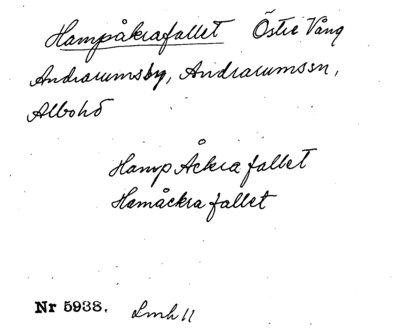 Hampåkrafallet Östre Vång
Andrarumsby, Andrarumssn,
Albohd
Hamp Åckra fallet
Hamåckra fallet
Nr 5938. Lmh 11